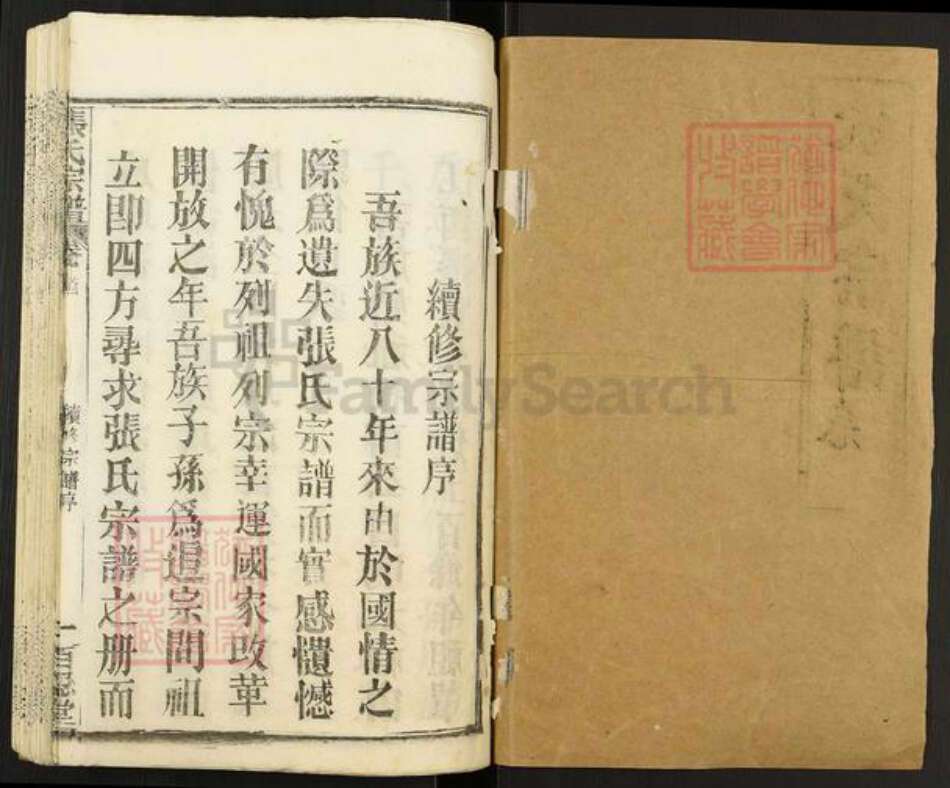 續修宗譜序
吾族近八十年來由於國情之
際爲遺失張氏宗譜而實感憾
有愧於列祖列宗幸運國家改革
開放之年吾族子孫爲追宗問祖
立即四方尋求張氏宗譜之册而
張氏宗譜 卷首
續修宗譜序
一 百忍堂
FamilySearch